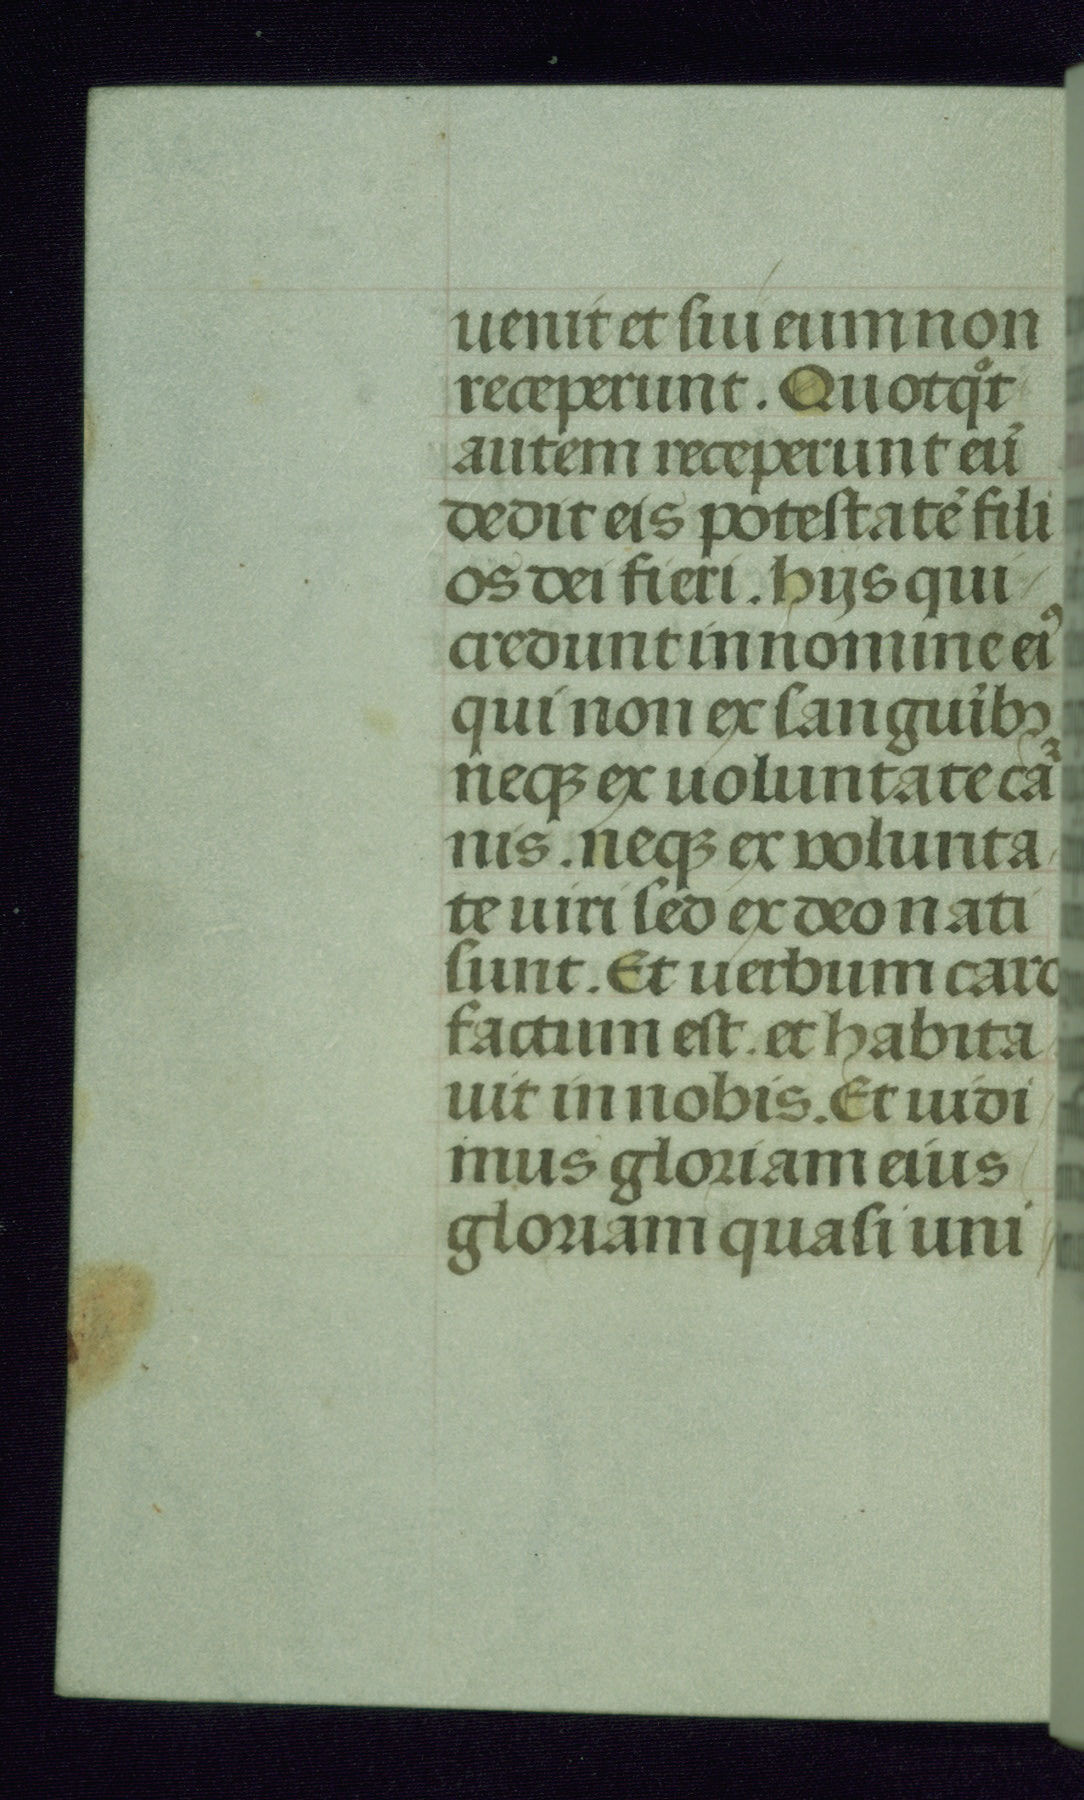 uenit et sui eum non
receperunt. Quotqͦt
autem receperunt eū
dedit eis potestatē fili
os dei fieri. hijs qui
credunt in nomine eiꝰ
qui non ex sanguībꝫ
neqꝫ ex uoluntate car̄
nis. neqꝫ ex volunta
te uiri sed ex deo nati
sunt. Et uerbum caro
factum est. et habita
uit in nobis. Et uidi
mus gloriam eius
gloriam quasi uni